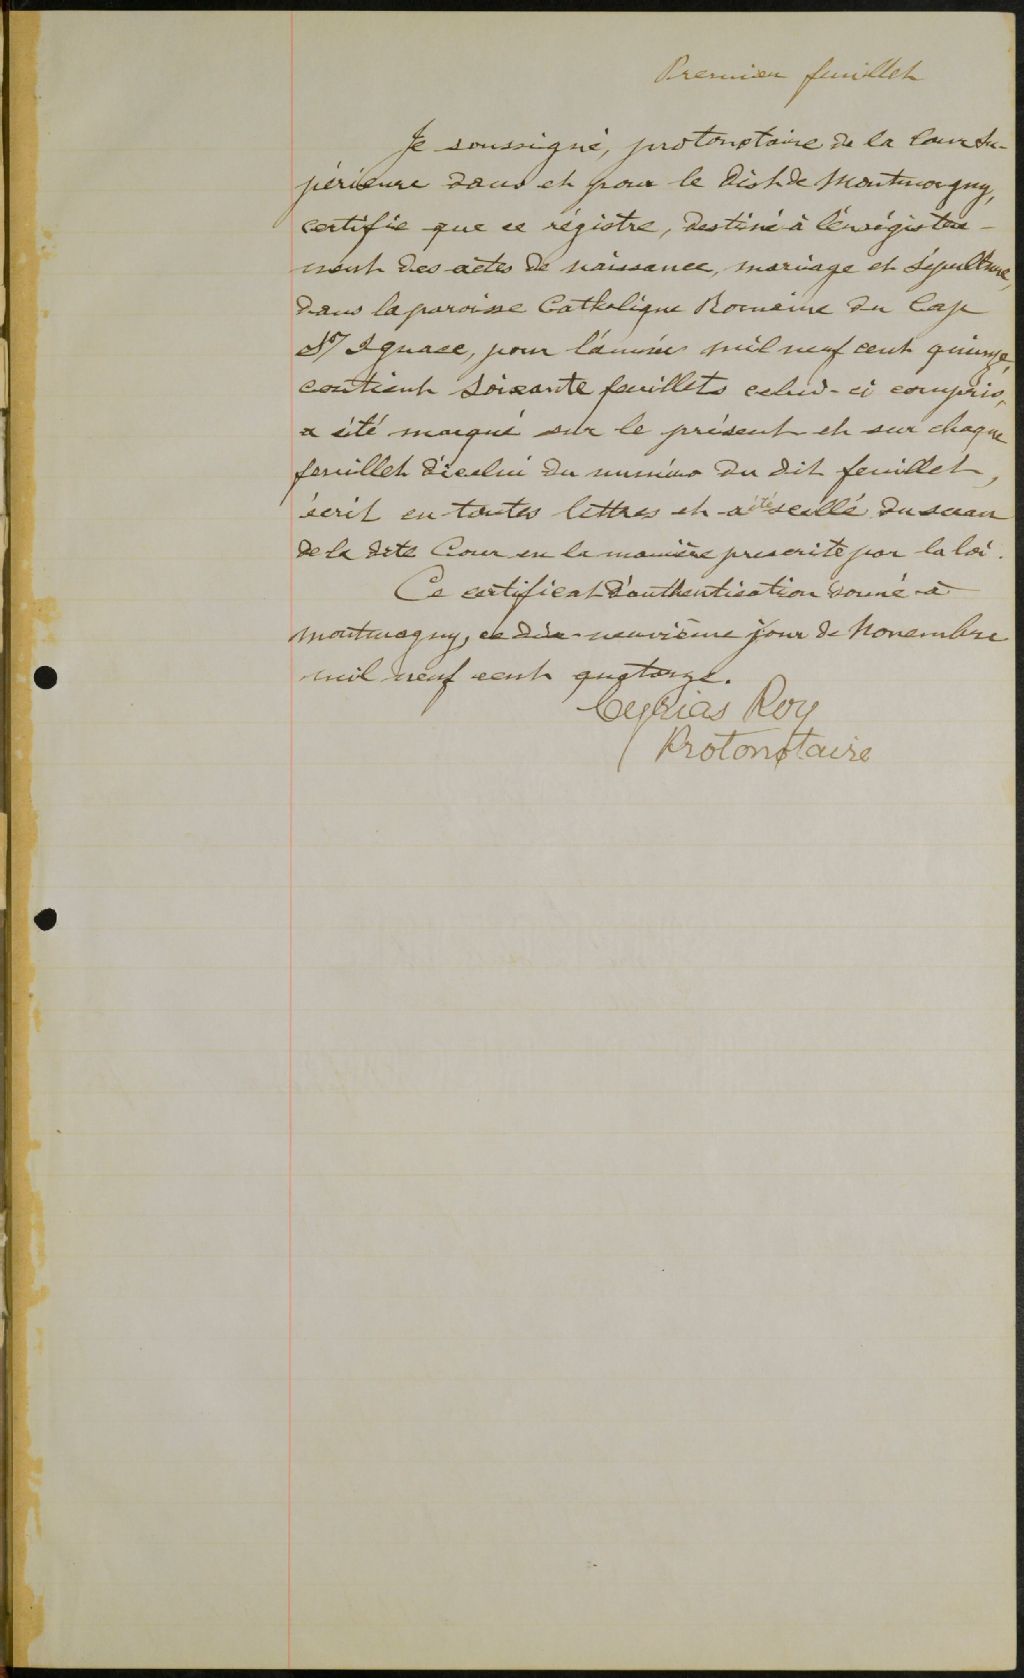 Premier feuillet
Je soussigné, protonotaire de la Cour Su-
périeure dans et pour le Dist de Montmagny,
certifie que ce régistre, destiné à l'enrégistre-
ment des actes de naissance, mariage et sépulture,
dans la paroisse Catholique Romaine du Cap
St Ignace, pour l'année mil neuf cent quinze,
contient soixante feuillets celui-ci compris,
a été marqué sur le présent et sur chaque
feuillet d'icelui du numéro du dit feuillet,
écrit en toutes lettres et a été scellé du sceau
de la dite Cour en la manière prescrite par la loi.
Ce certificat d'authentication donné à
Montmagny, ce dix-neuvième jour de Novembre
mil neuf cent quatorze.
Cyrias Roy
Protonotaire